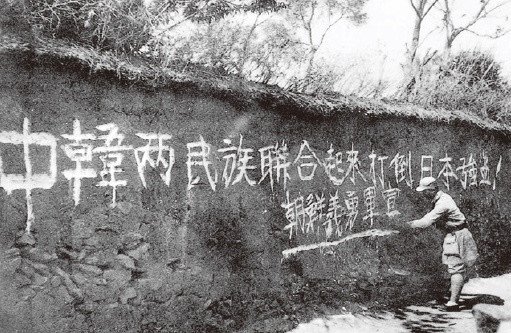 中韓兩民族聯合起來打倒日本強盜！
朝鮮義勇軍宣